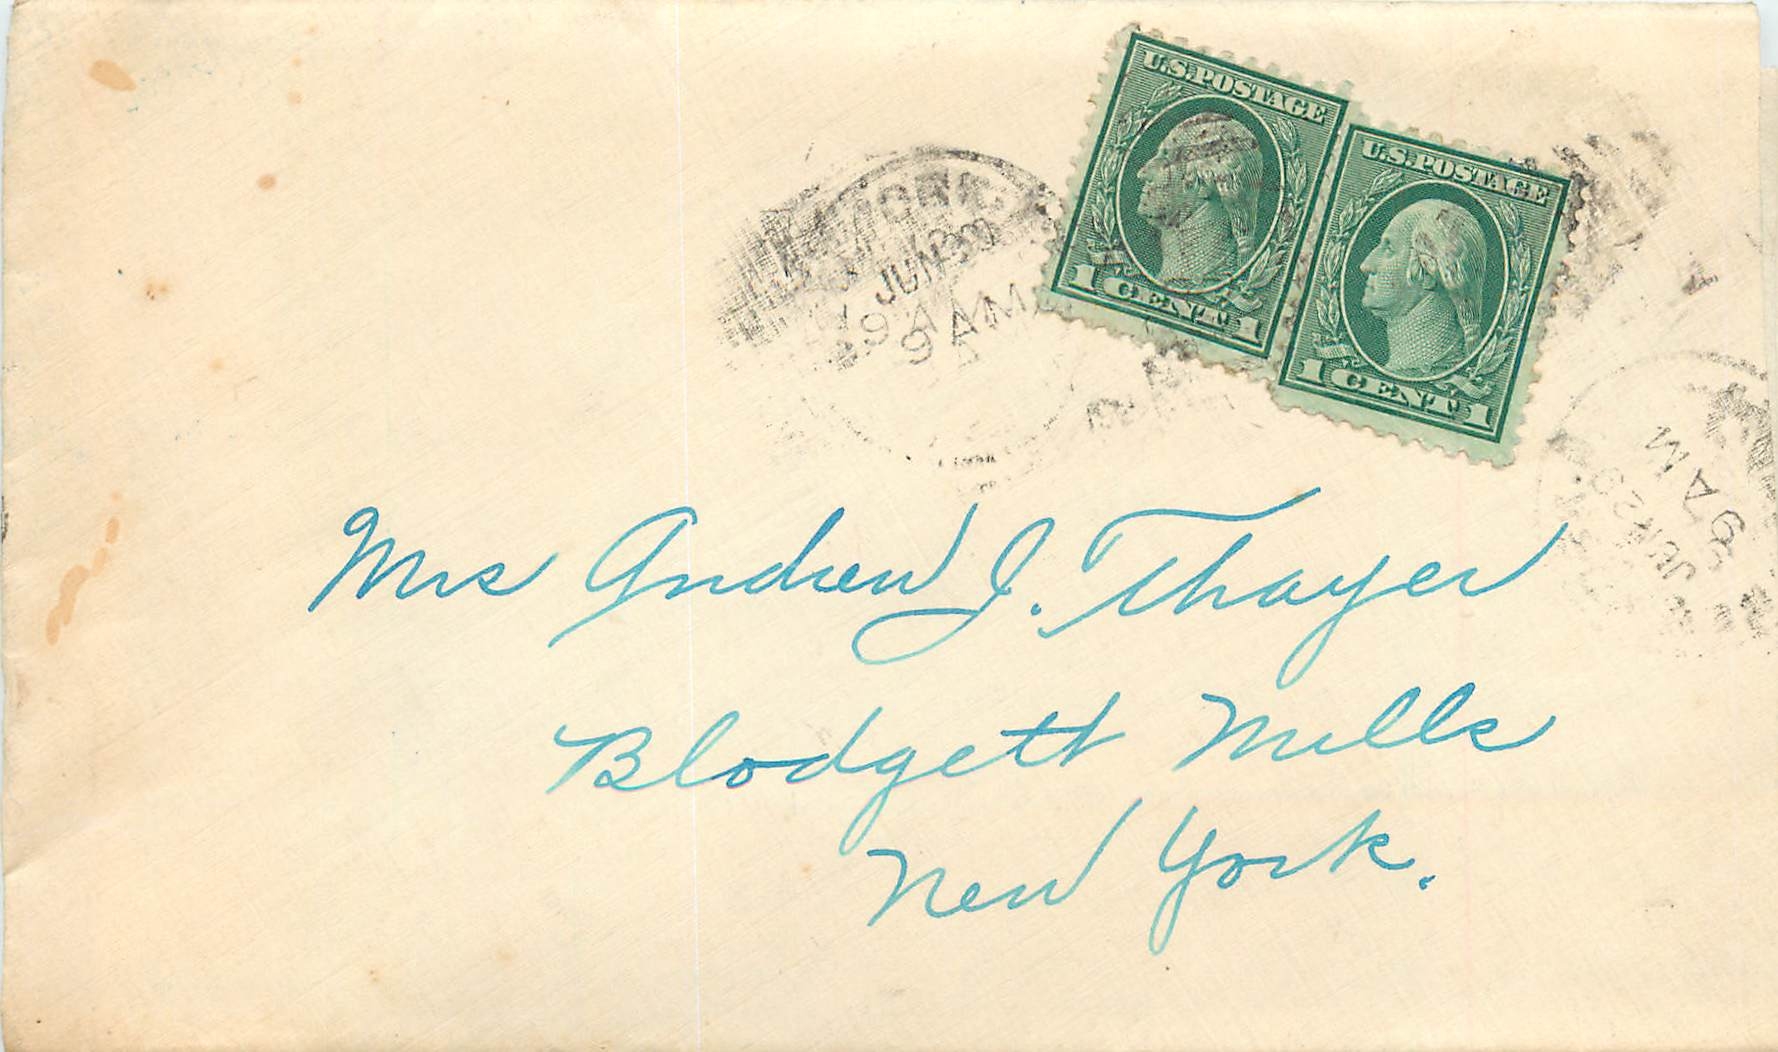 U.S. POSTAGE
1 CENT 1
U.S. POSTAGE
1 CENT 1
JUN
9 AM
9 AM
JUN
9 AM
Mrs Andrew J. Thayer
Blodgett Mills
New York.